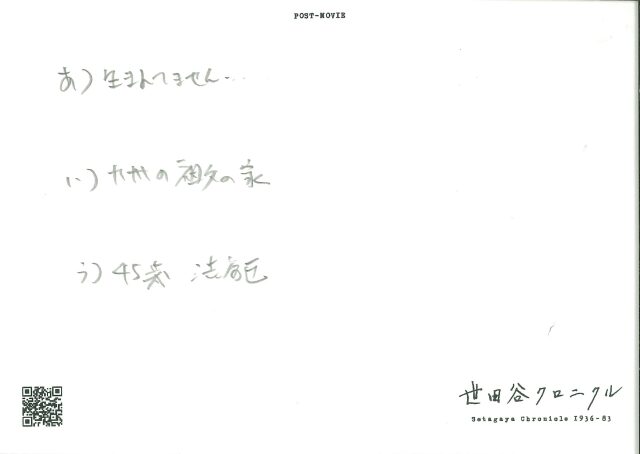 POST-MOVIE
あ) 生まれてません…
い) 九州の祖父の家
う) 45歳
世田谷クロニクル
Setagaya Chronicle 1936-83